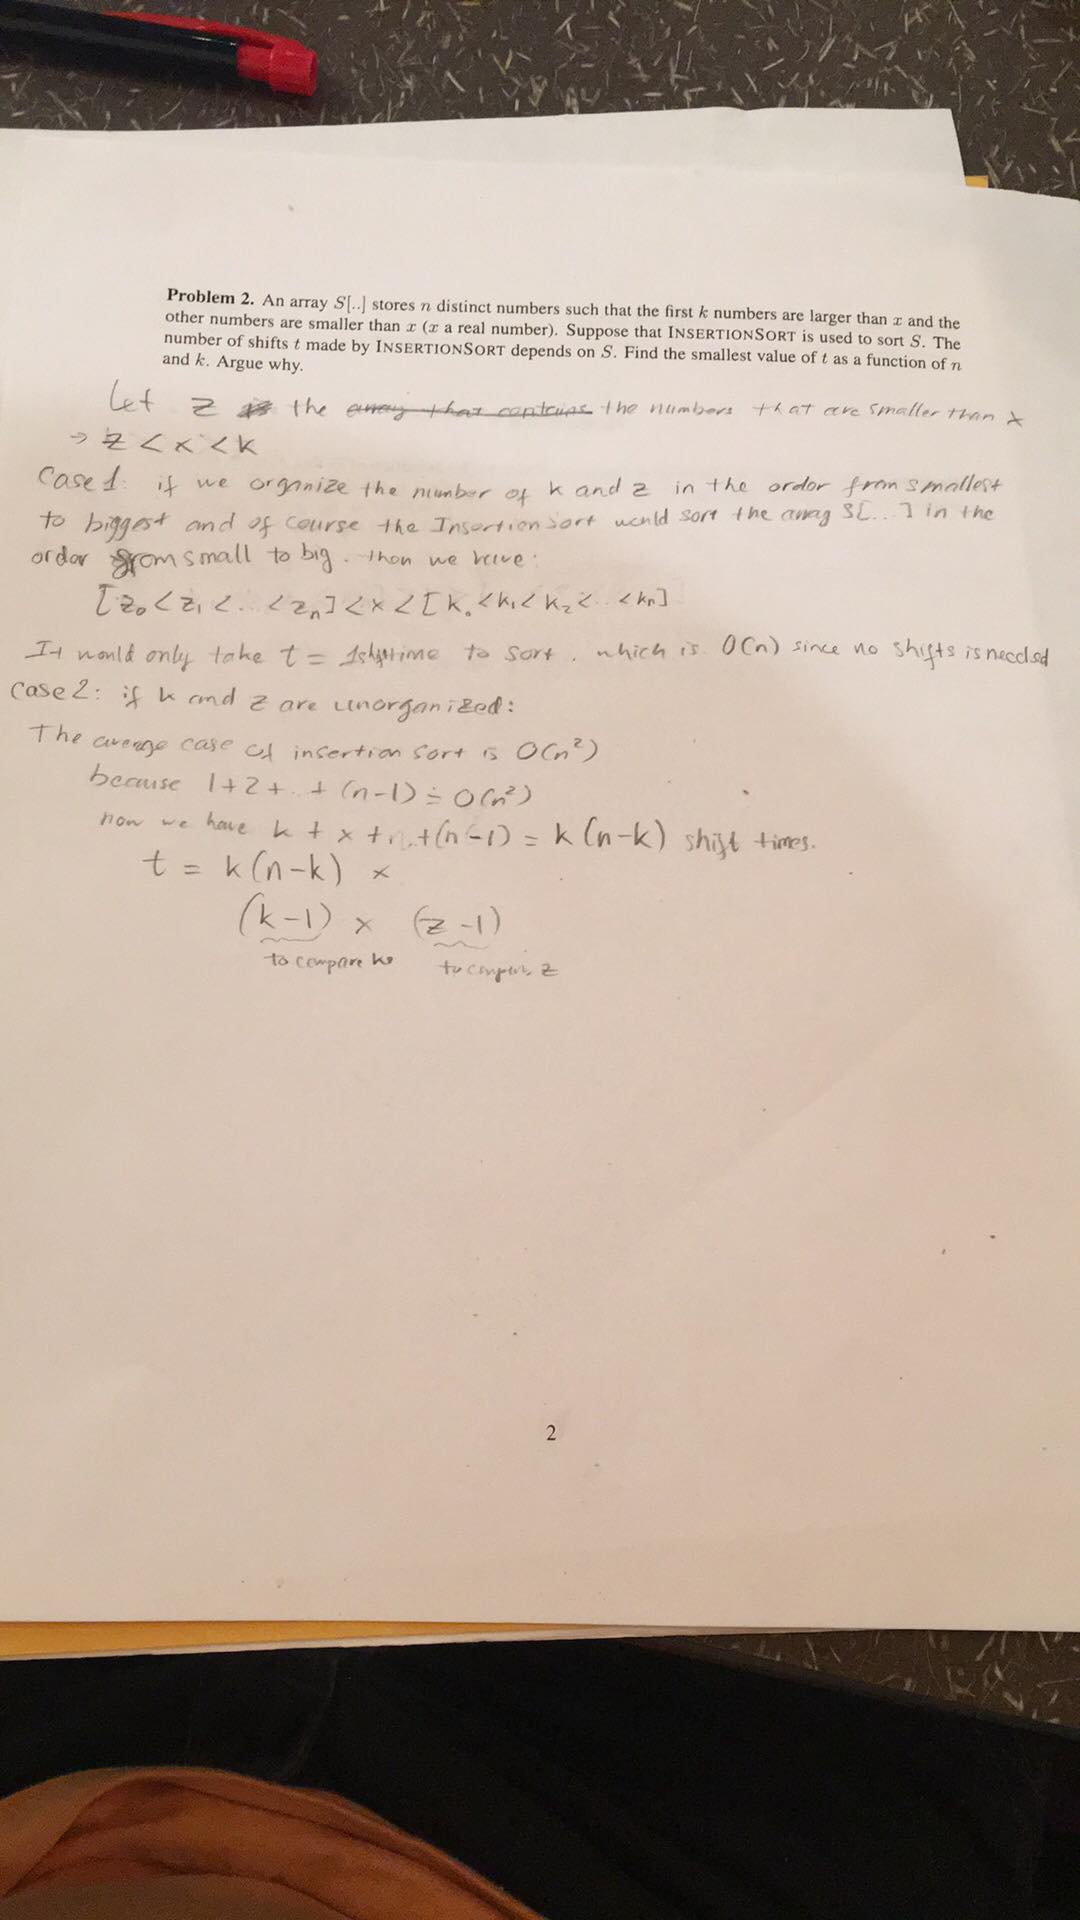 Problem 2. An array S[..] stores n distinct numbers such that the first k numbers are larger than x and the
other numbers are smaller than x (x a real number). Suppose that INSERTIONSORT is used to sort S. The
number of shifts t made by INSERTIONSORT depends on S. Find the smallest value of t as a function of n
and k. Argue why.
Let z the array that contains the numbers that are smaller than x
→ z < x < k
Case 1: if we organize the number of k and z in the ordor from smallest
to biggest and of course the Insertion Sort would sort the array S[...] in the
ordor from small to big. then we have:
[z₀ < z₁ < .. < zₙ] < x < [k₀ < k₁ < k₂ < .. < kₙ]
It would only take t = time to sort, which is O(n) since no shifts is needed
Case 2: if k and z are unorganized:
The average case of insertion sort is O(n²)
because 1+2+..+(n-1) = O(n²)
now we have k + x + +(n-1) = k(n-k) shift times.
t = k(n-k) ×
(k-1) × (z-1)
to compare to z
2